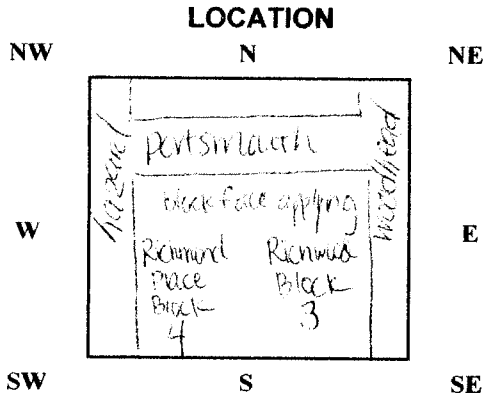 LOCATION
NW N NE
hazard
Portsmouth
woodhead
block face applying
W E
Richmond Place Block 4
Richwood Block 3
SW S SE